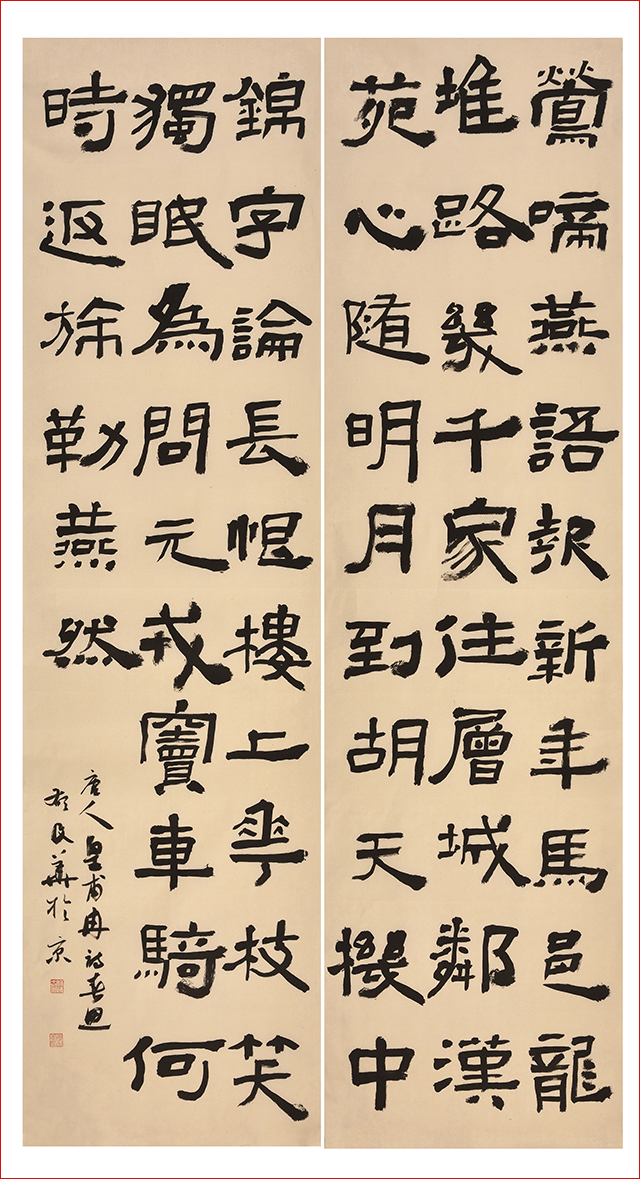 鶯啼燕語報新年馬邑龍
堆路幾千家住層城鄰漢
苑心随明月到胡天機中
錦字論長恨樓上花枝笑
獨眠為問元戎竇車騎何
時返旆勒燕然
唐人皇甫冉詩春思
華於京